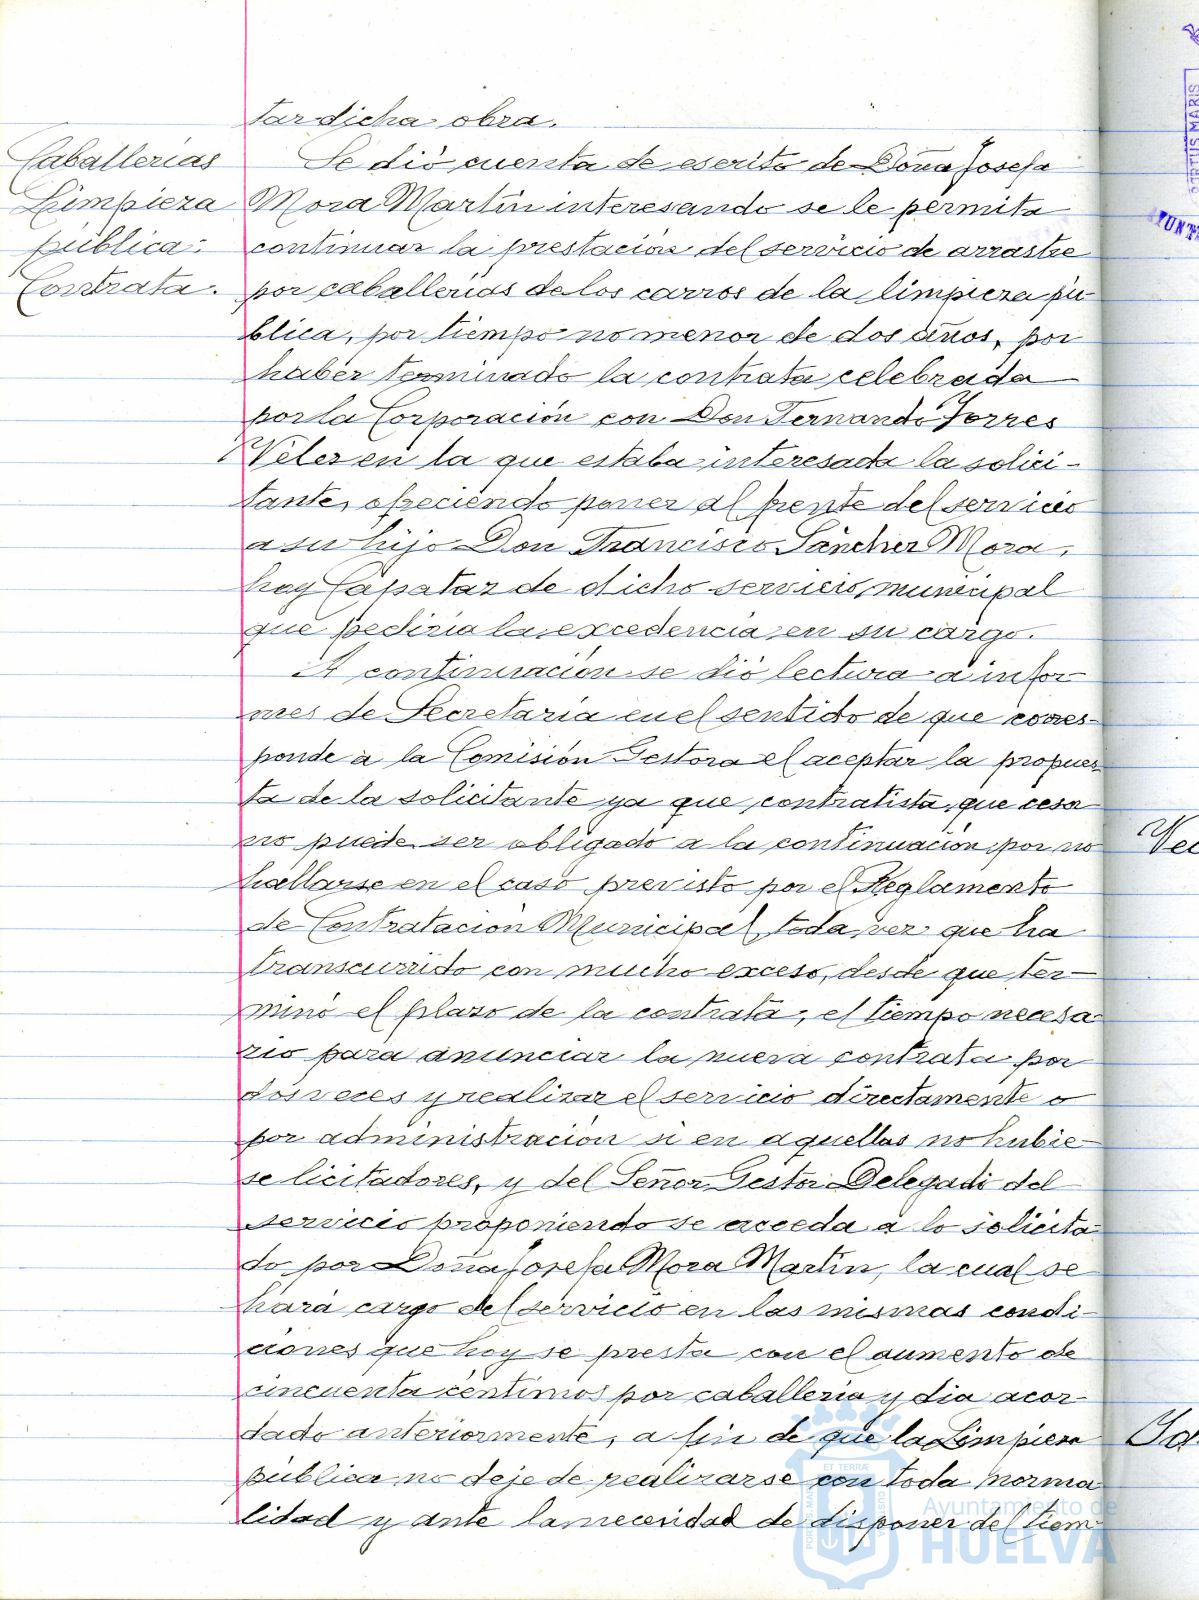 tar dicha obra.
Caballerías
Limpieza
pública:
Contrata.
Se dió cuenta de escrito de Doña Josefa
Mora Martín interesando se le permita
continuar la prestación del servicio de arrastre
por caballerías de los carros de la limpieza pú-
blica, por tiempo no menor de dos años, por
haber terminado la contrata celebrada
por la Corporación con Don Fernando Torres
Vélez en la que estaba interesada la solici-
tante, ofreciendo poner al frente del servicio
a su hijo Don Francisco Sánchez Mora,
hoy Capataz de dicho servicio municipal
que pediría la excedencia en su cargo.
A continuación se dió lectura a infor-
mes de Secretaría en el sentido de que corres-
ponde a la Comisión Gestora el aceptar la propues-
ta de la solicitante ya que contratista que cesa
no puede ser obligado a la continuación por no
hallarse en el caso previsto por el Reglamento
de Contratación Municipal, toda vez que ha
transcurrido con mucho exceso, desde que ter-
minó el plazo de la contrata, el tiempo necesa-
rio para anunciar la nueva contrata por
dos veces y realizar el servicio directamente o
por administración si en aquellas no hubie-
se licitadores, y del Señor Gestor Delegado del
servicio proponiendo se acceda a lo solicita-
do por Doña Josefa Mora Martín, la cual se
hará cargo del servicio en las mismas condi-
ciones que hoy se presta con el aumento de
cincuenta céntimos por caballería y día acor-
dado anteriormente, a fin de que la Limpieza
pública no deje de realizarse con toda norma-
lidad y ante la necesidad de disponer del tiem-
Ayuntamiento de
HUELVA